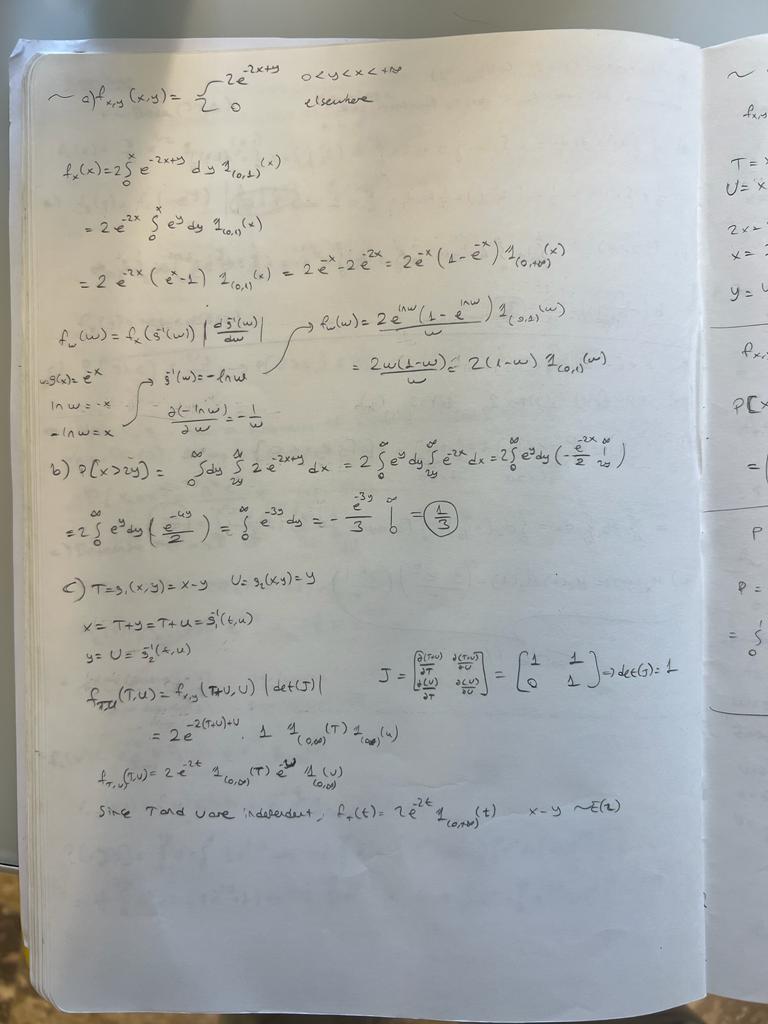 ~ a) f_{x,y}(x,y) = { 2e^{-2x+y} 0<y<x<+∞
0 elsewhere
f_x(x) = 2∫_0^x e^{-2x+y} dy 1_{(0,1)}(x)
= 2e^{-2x} ∫_0^x e^y dy 1_{(0,1)}(x)
= 2e^{-2x}(e^x-1) 1_{(0,1)}(x) = 2e^{-x}-2e^{-2x} = 2e^{-x}(1-e^{-x}) 1_{(0,+∞)}(x)
f_w(w) = f_x(g^{-1}(w)) |dg^{-1}(w)/dw| → f_w(w) = 2e^{lnw}(1-e^{lnw})/w 1_{(0,1)}(w)
w=g(x)=e^{-x} → g^{-1}(w) = -lnw = 2w(1-w)/w = 2(1-w) 1_{(0,1)}(w)
ln w = -x
-ln w = x ∂(-lnw)/∂w = -1/w
b) P[x>2y] = ∫_0^∞ dy ∫_{2y}^∞ 2e^{-2x+y} dx = 2∫_0^∞ e^y dy ∫_{2y}^∞ e^{-2x} dx = 2∫_0^∞ e^y dy (-e^{-2x}/2 |_{2y}^∞)
= 2∫_0^∞ e^y dy (e^{-4y}/2) = ∫_0^∞ e^{-3y} dy = -e^{-3y}/3 |_0^∞ = 1/3
c) T=g_1(x,y)=x-y U=g_2(x,y)=y
x = T+y = T+U = g_1^{-1}(t,u)
y = U = g_2^{-1}(t,u)
J = [∂(T+U)/∂T ∂(T+U)/∂U; ∂(U)/∂T ∂(U)/∂U] = [1 1; 0 1] → det(J)=1
f_{T,U}(T,U) = f_{x,y}(T+U,U) |det(J)|
= 2e^{-2(T+U)+U} · 1 1_{(0,∞)}(T) 1_{(0,∞)}(u)
f_{T,U}(T,U) = 2e^{-2t} 1_{(0,∞)}(T) e^{-u} 1_{(0,∞)}(U)
Since T and U are independent, f_T(t) = 2e^{-2t} 1_{(0,+∞)}(t) x-y ~E(2)
~
f_{x,y}
T=
U= x
2x=
x=
y=
f_{x,
P[x
= (
P
P =
= ∫_0^1